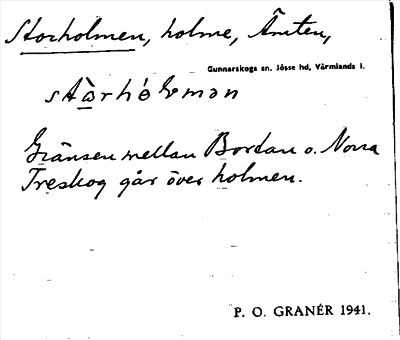 Storholmen, holme, Ämten,
Gunnarskogs sn. Jösse hd, Värmlands l.
Gränsen mellan Bordan o. Norra
Treskog går över holmen.
P. O. GRANÉR 1941.